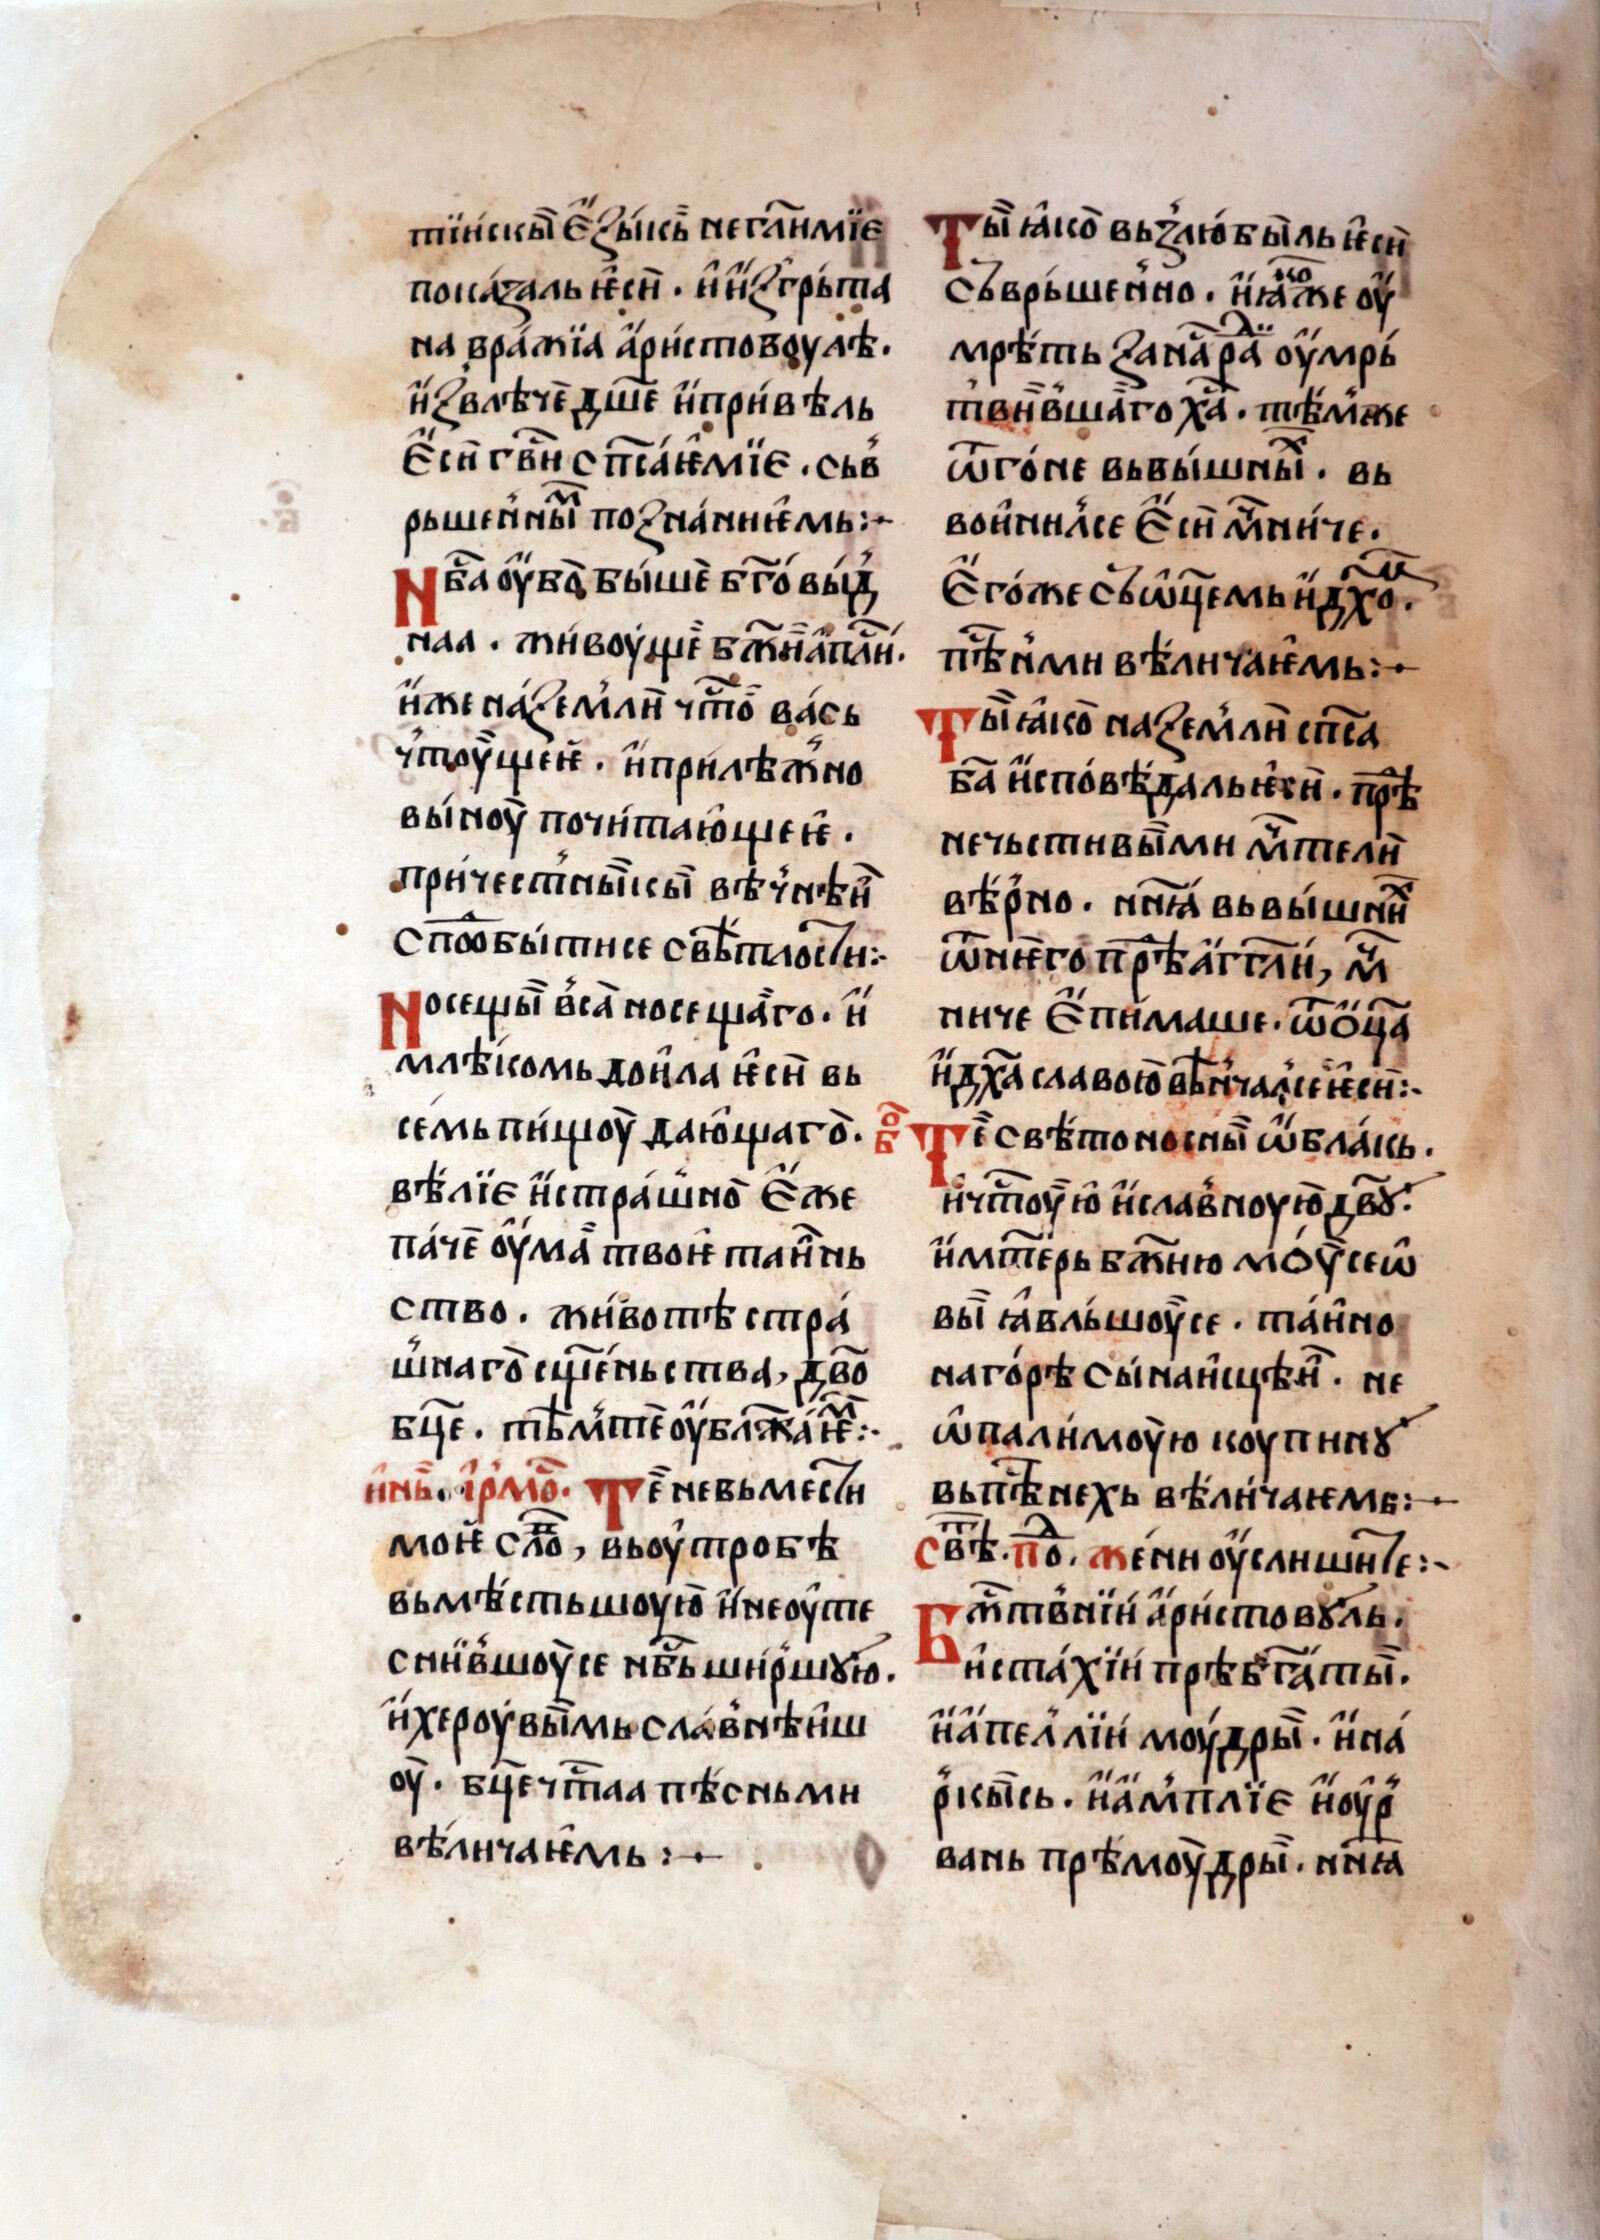 тїискы̏ є҆ꙁы́кь̏ не гл҃имїє
пока́ꙁаль ѥ҆сн̏. и҆ и҆ꙁгрьта
на вра́жїа а҆ри́стовоулѣ.
и҆ꙁвлѣче̏ дш҃е и҆ приве́ль
є҆си̏ гв҃и сп҃са́ѥмїє. сьв
рьшен́ны̏ⷨ поꙁна́ниѥ҆мь:~
Нб҃а оу҆бо̏ бы́ше̏ бг҃о́ви́д
наа. жи́воу́ще̏ бж҃н҃и а҆пл҃и́.
и҆же на ꙁемлн̏ чт҃о̏ ва́сь
чтоу̏щеѥ. и҆ прилѣжно
вы́ноу̏ почи́таю҆щеѥ҆.
при́чест́ны̏кы̏ вѣ́чнѣи̏
сподобы́тнсе свѣ́тлости:~
Носещы̏ вса̏ носеща̏го. и҆
млѣ́комь дои҆ла ѥ҆сн̏ вь
семь пи́щоу̏ даю҆щаго̏.
вѣ́лїє и҆ стра́шно̏ є҆же
па́че̏ оу҆ма̏ твоѥ҆ таи҆нь
ство. жи́вотѣ стра́
шнаго̏ сщ҃е́ньства, дв҃о
бц҃е. тѣмте̏ оу҆блж҃а́ѥⷨ:~
и҆нь̏. і҆рмо̏. Те̏ не вьмести
моѥ҆ сло̏, вь оу҆тробѣ
вьмѣ́стьшоую̏ и҆ не оу҆те
снии́вшоу̏се нб҃ь ши́ршꙋю.
и҆ хероу́вы̏мь сла́внѣи҆ш
оу̏. бц҃е чт҃аа пѣ́сньми
вѣ́личаѥ҆мь:~
Ты̏ ꙗ҆ко̏ вьꙁлю́бы̏ль ѥ҆сн̏
сьврьше́нно. и҆ ꙗ҆коⷤже оу҆
мрѣ́ть ꙁа на̏ ра́ⷣи оу҆мрь́
твн҃вша̏го х҃а. тѣ́мже
ѿго́не вь вы́шны̏ⷯ. вь
вои́нилсе є҆сн̏ мⷱ҇ни́че.
є҆го́же сь ѡ҆ц҃емь и҆ дх҃оⷨ.
пѣ̏ньми вѣ́личаѥ҆мь:~
Ты̏ ꙗ҆ко̏ на ꙁемлн̏ сп҃са
ба҃ и҆спо́вѣ́даль ѥ҆сн̏. прѣⷣ
нечьстивы̏ми мⷱ҇телн̏
вѣ́рно. нн҃ꙗ́ вь вы́шниⷯ
ѿ нѥ̏го прѣⷣ а҆гг҃ли́, мⷱ҇
ниче є҆пи́маше. ѿ ѻ҆ц҃а
и҆ дх҃а славою̏ вѣ́нчалсе ѥ҆сн̏:~
бо̏ Те̏ свѣ́тоносны̏ ѡ҆бла́кь.
и҆ чт҃оу̏ю҆ и҆ сла́вноую̏ дв҃ꙋ.
и҆ мт҃е́рь бж҃ню мо́ѷсеѡ
вы̏ ꙗ҆вльшоу̏се. та́и҆но
на го́рѣ сы́наи҆сцѣи̏. не
ѡ҆пали́моу̏ю коупинꙋ
вь пѣ̏нехь вѣ́ли́чаѥмь:~
свѣⷮ. поⷣ. же́ни оу҆слишите:~
Бжⷭ҇твнїи́ а҆ри́стовꙋ́ль.
и҆ ста́хїи́ прѣбг҃а́ты̏.
и҆ а҆пеллїи́ моу́дры̏. и҆ на́
ркы̏сь. и҆ а҆мплїє и҆ оу҆р
вань прѣ́моу̏дры̏. нн҃ꙗ